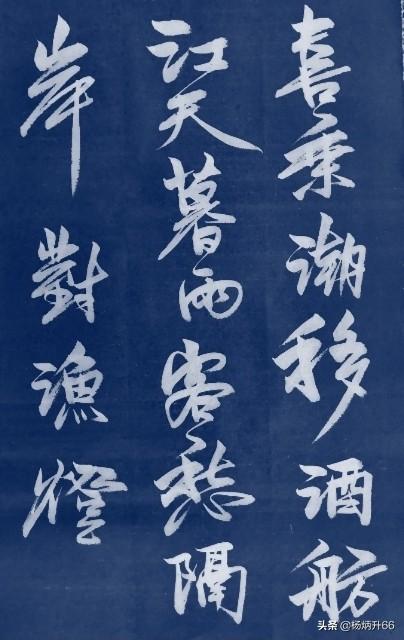 喜乘潮移酒舫
江天暮雨客愁隔
岸對漁燈
头条 @杨炳升66